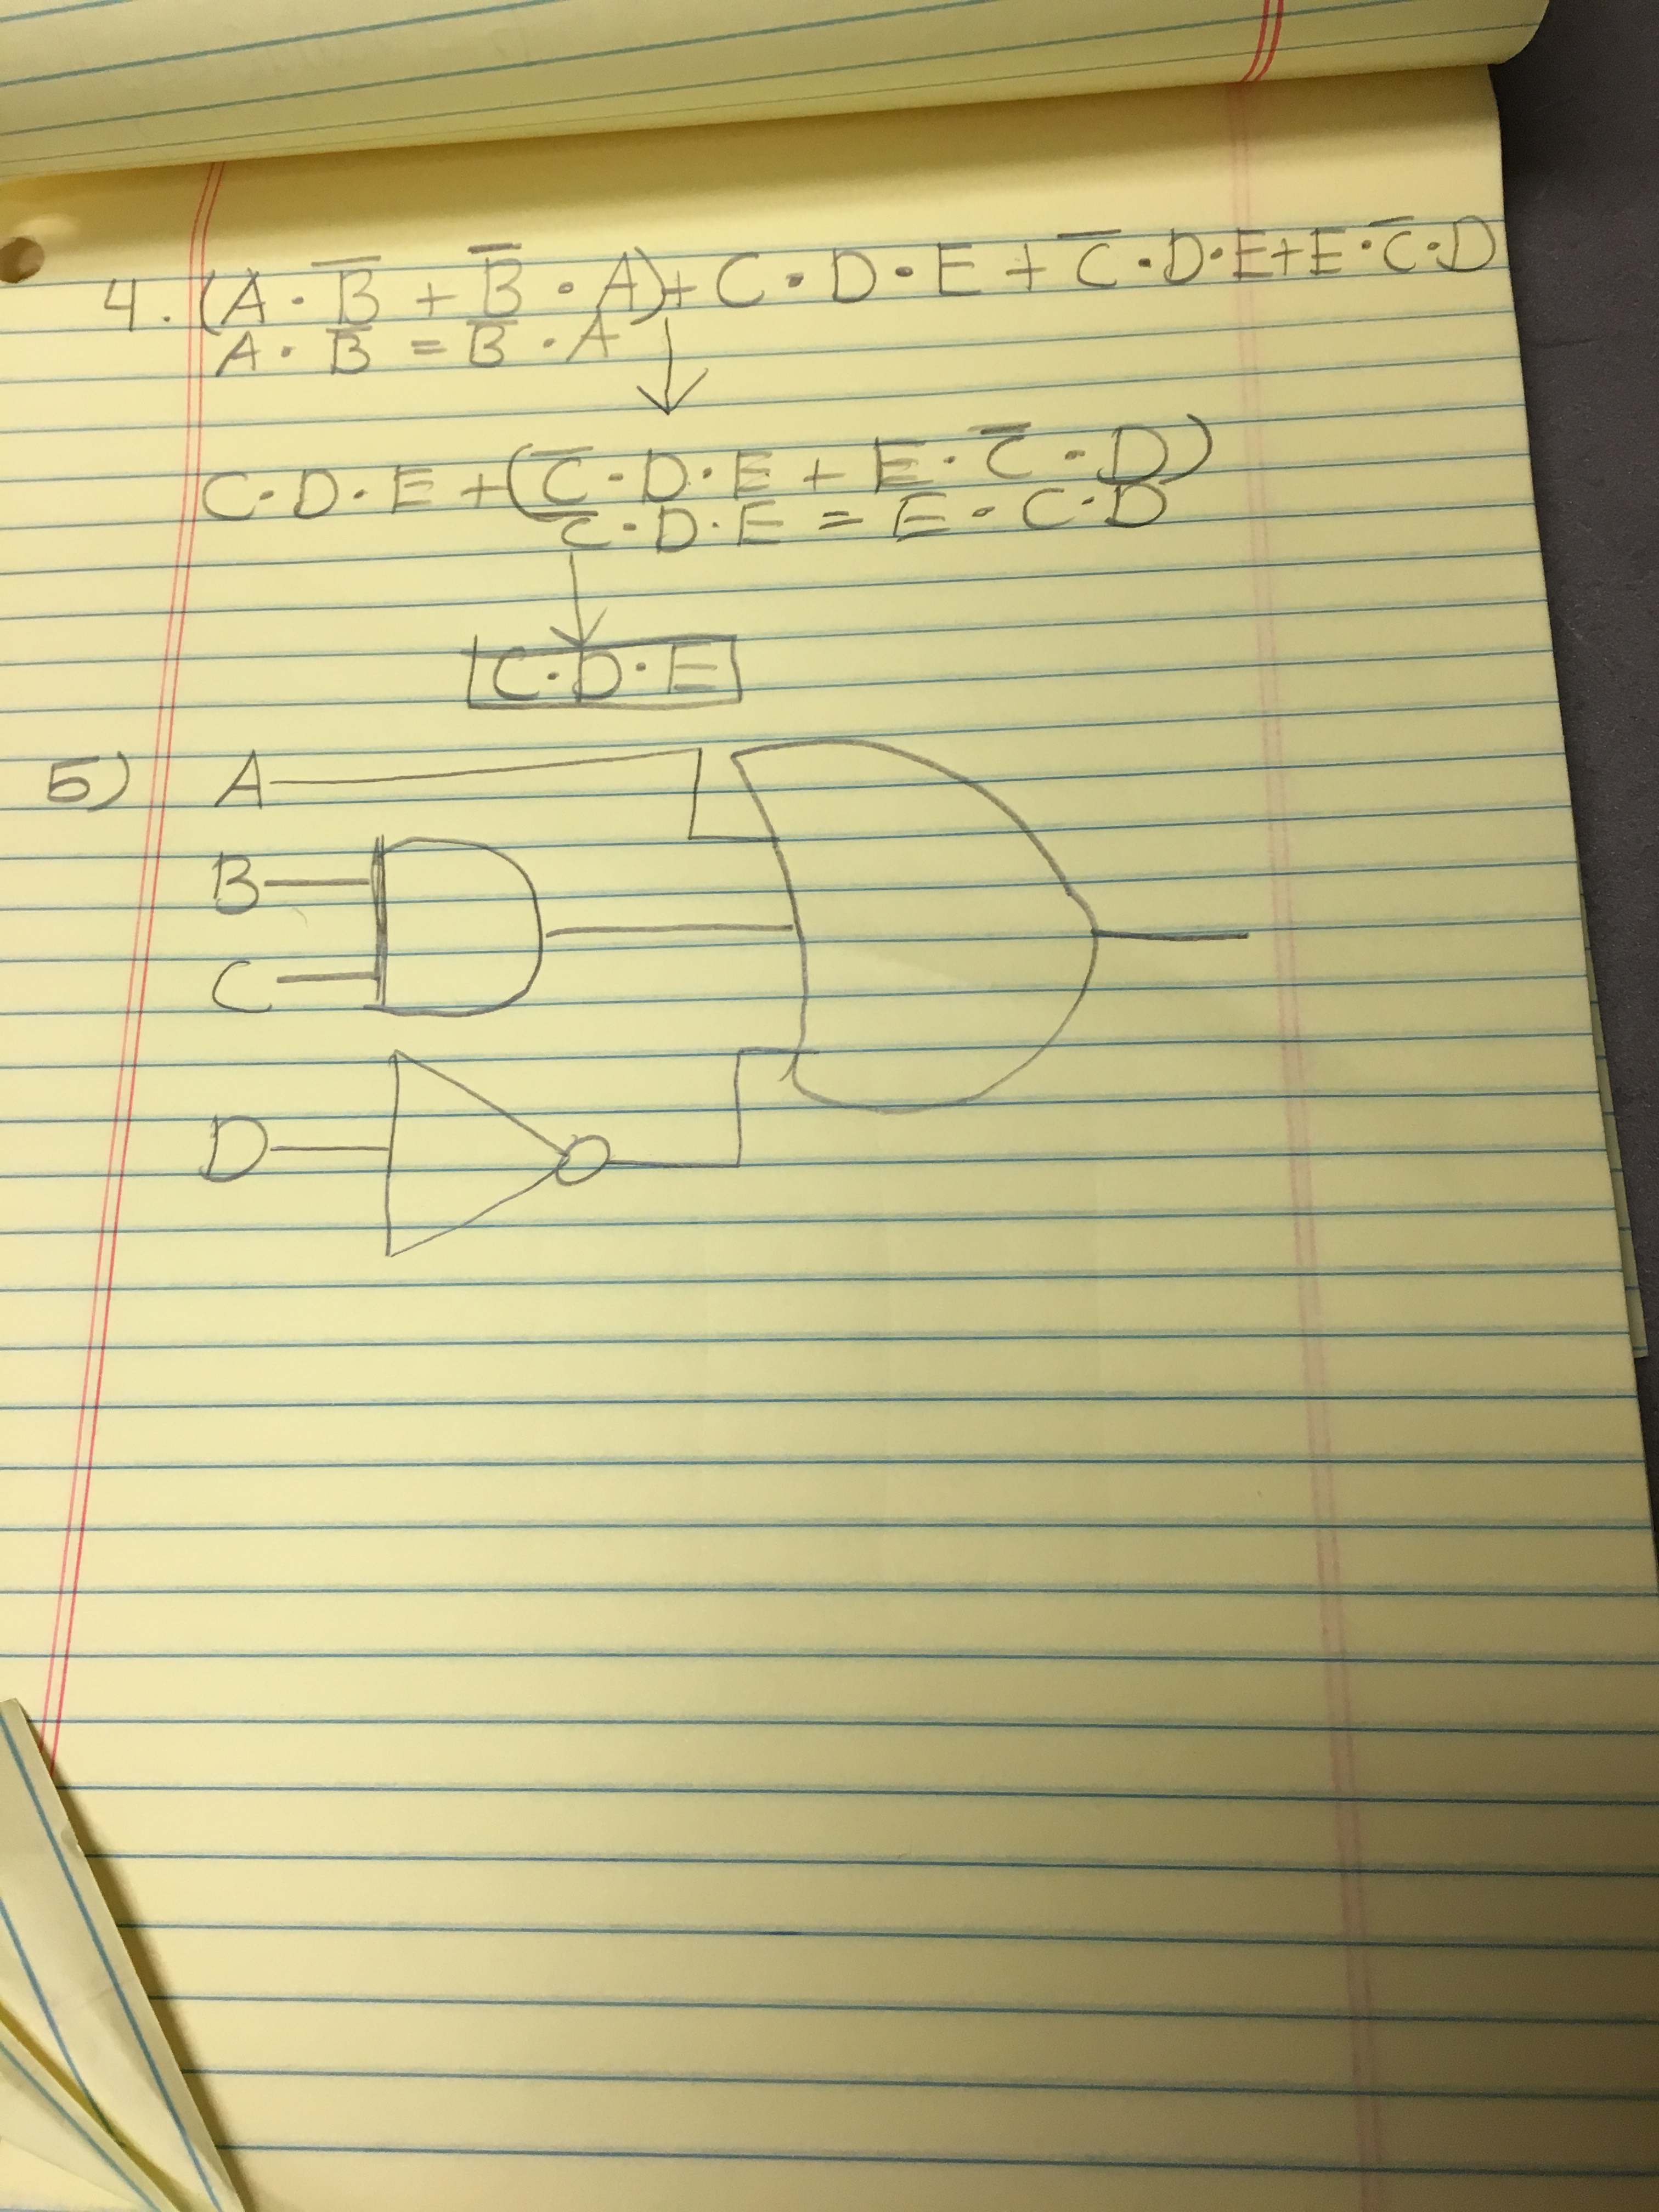 4. (A · B̅ + B̅ · A) + C · D · E + C̅ · D · E + E · C̅ · D
A · B̅ = B̅ · A
C · D · E + (C̅ · D · E + E · C̅ · D)
C̅ · D · E = E · C · D
C · D · E
5) A
B
C
D